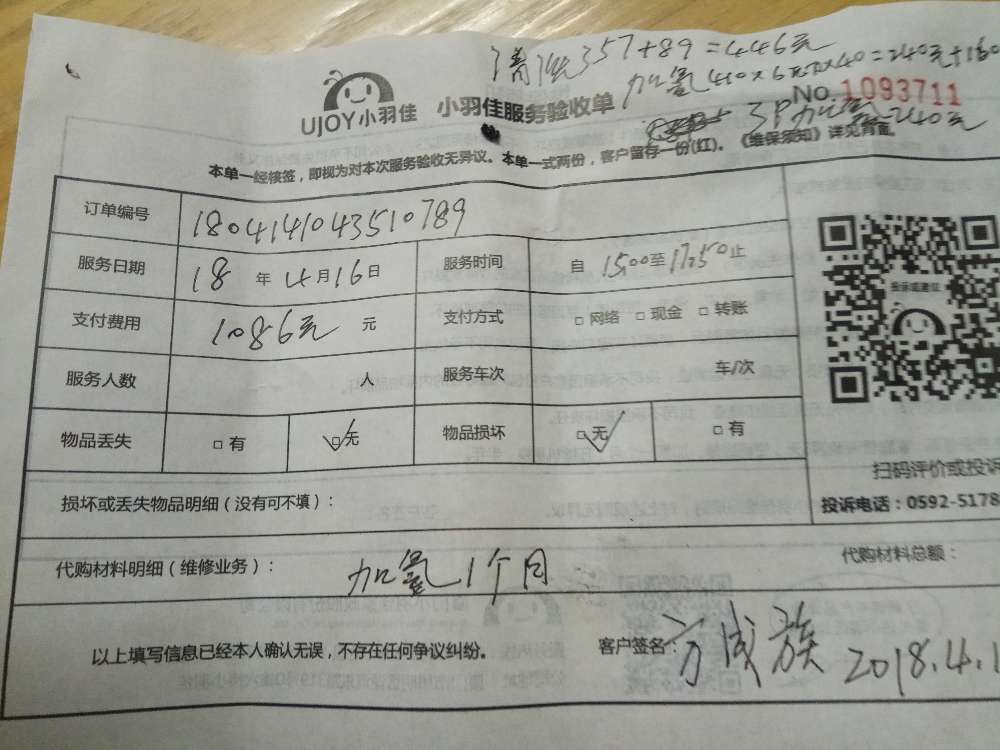 清洗357+89=446元
加氟40×6元×40=240元+160
UJOY小羽佳 小羽佳服务验收单 No.1093711
3P加氟=240元
本单一经核签，即视为对本次服务验收无异议。本单一式两份，客户留存一份(红)。《维保须知》详见背面
订单编号 1804141043510789
服务日期 18年4月16日 服务时间 自15:00至17:50止
支付费用 1086元 元 支付方式 □网络 □现金 □转账
服务人数 人 服务车次 车/次
物品丢失 □有 ☑无 物品损坏 ☑无 □有
投诉或建议
扫码评价或投诉
投诉电话：0592-5178
损坏或丢失物品明细（没有可不填）：
代购材料明细（维修业务）： 加氟1个月 代购材料总额：
以上填写信息已经本人确认无误，不存在任何争议纠纷。 客户签名： 方成族 2018.4.1